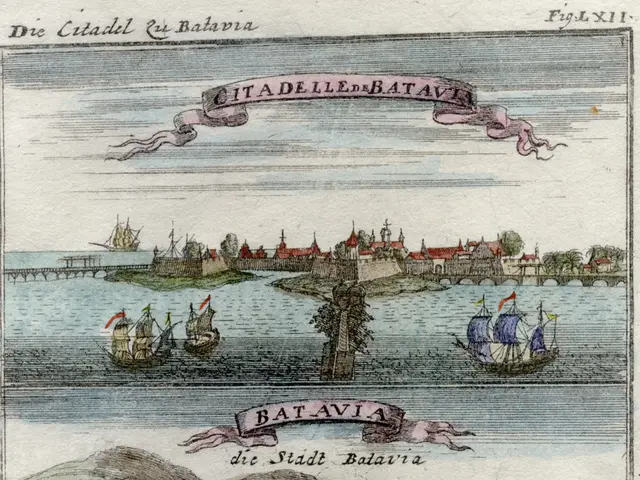 Die Citadel Zu Batavia
Fig. LXII.
CITADELLE DE BATAVIA
BATAVIA
die Stadt Batavia